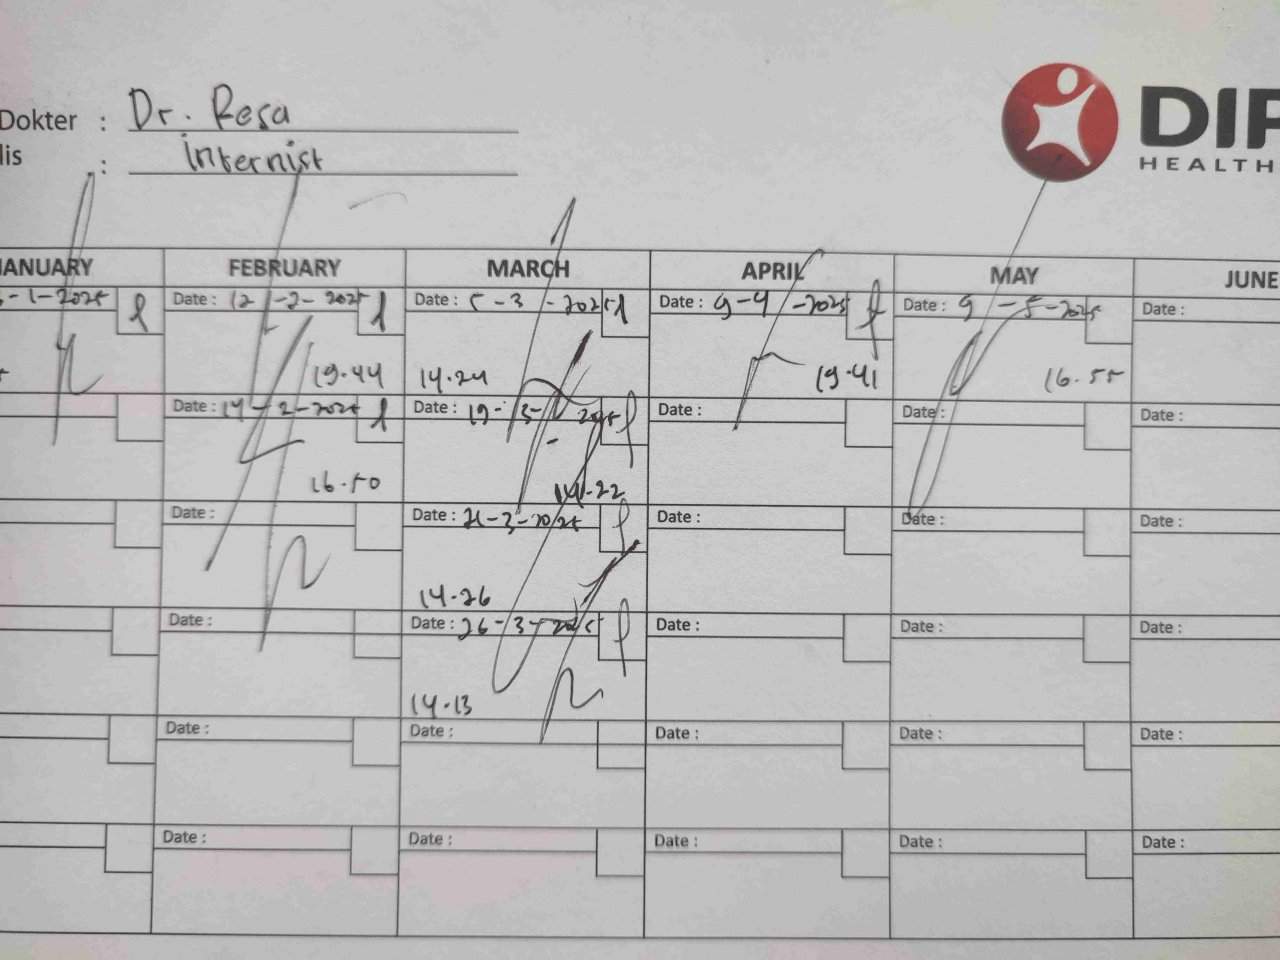 Dokter : Dr. Resa
lis : internist
DIP
HEALTH
JANUARY FEBRUARY MARCH APRIL MAY JUNE
-1-2025 Date : 12-2-2025 Date : 5-3-2025 Date : 9-4-2025 Date : 9-5-2025 Date :
19.44 14.24 19.41 16.55
Date : 14-2-2025 Date : 19-3-2025 Date : Date : Date :
16.50 14.22
Date : Date : 21-3-2025 Date : Date : Date :
14.26
Date : Date : 26-3-2025 Date : Date : Date :
14.13
Date : Date : Date : Date : Date :
Date : Date : Date : Date : Date :